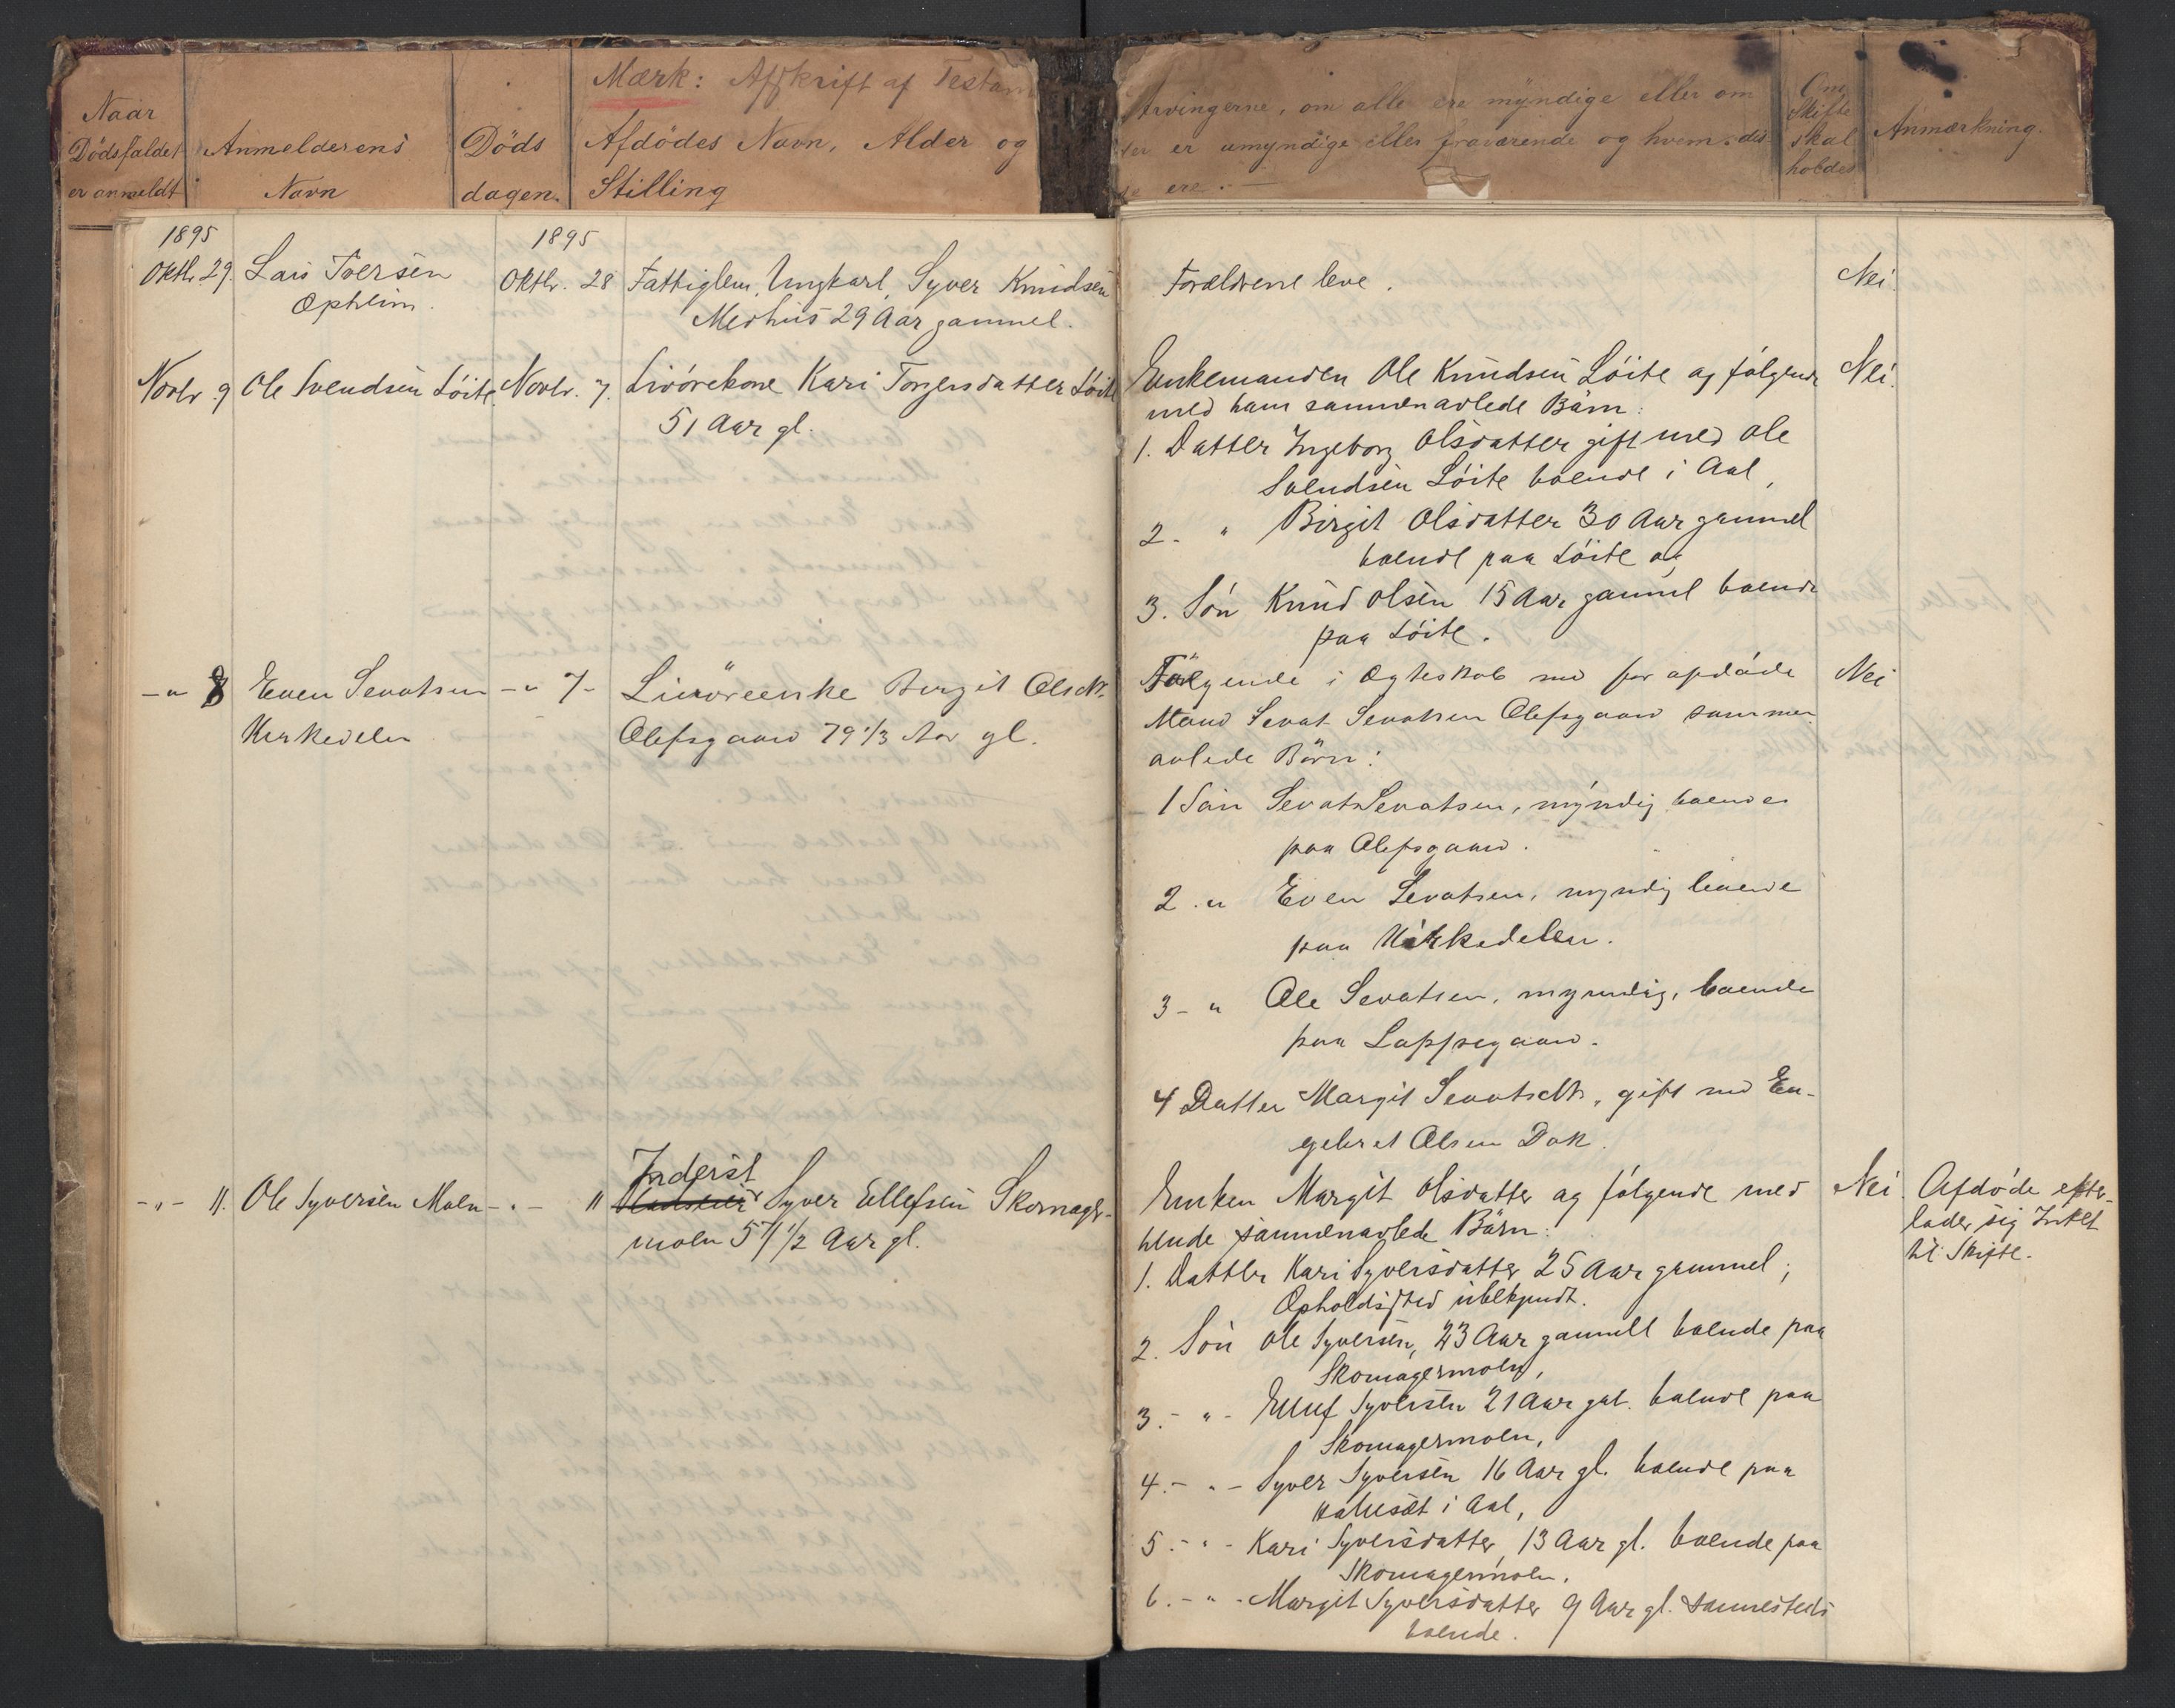 Mærk: Afskrift af Testam
Naar
Dödsfaldet
er anmeldt
Anmelderens
Navn
Döds
dagen.
Afdödes Navn, Alder og
Stilling
Arvingerne, om alle ere myndige eller om
er umyndige eller fraværende og hvem dis
ere.
Om
Skifte
skal
holdes
Anmærkning.
1895
Oktbr. 29.
Lars Toersen
Opheim.
1895
Oktbr. 28
Fattiglem, Ungkarl, Syver Knudsen
Medhus 29 Aar gammel.
Forældrene leve.
Nei.
Novbr. 9
Ole Svendsen Löite.
Novbr. 7.
Livörekone Kari Torgersdatter Löite
51 Aar gl.
Enkemanden Ole Knudsen Löite og følgende
med ham sammenavlede Börn:
1. Datter Ingeborg Olsdatter gift med Ole
Svendsen Löite boende i Aal,
2. " Birgit Olsdatter 30 Aar gammel
boende paa Löite og
3. Sön Knud Olsen 15 Aar gammel boende
paa Löite.
Nei.
-"- 8
Even Sevatsen
Kirkedelen
-" 7-
Livöreenke Bergit Olsdtr.
Olefsgaard 79 1/3 Aar gl.
Fölgende i Ægteskab med før afdøde
Mand Sevat Sevatsen Olefsgaard sammen
avlede Börn:
1 Sön Sevat Sevatsen, myndig boende
paa Olefsgaard.
2. " Even Sevatsen, myndig boende
paa Kirkedelen.
3- " Ole Sevatsen, myndig, boende
paa Lappegaard.
4 Datter Margit Sevatsdtr, gift med En-
gebret Olsen Dok.
Nei
-"- 11.
Ole Syversen Moen
-"- 11
Inderst
Syver Ellefsen Skomager-
moen 57 1/2 Aar gl.
Enken Margit Olsdatter og følgende med
hende sammenavlede Börn:
1. Datter Kari Syversdatter 25 Aar gammel;
Opholdssted ubekjendt.
2. Sön Ole Syversen, 23 Aar gammel boende paa
Skomagermoen,
3.- " - Elluf Syversen 21 Aar gal. boende paa
Skomagermoen,
4.- " - Syver Syversen 16 Aar gl. boende paa
i Aal,
5.- " - Kari Syversdatter 13 Aar gl. boende paa
Skomagermoen.
6.- " - Margit Syversdatter 9 Aar gl. sammesteds
boende.
Nei
Afdøde efter-
lader sig Intet
til Skifte.